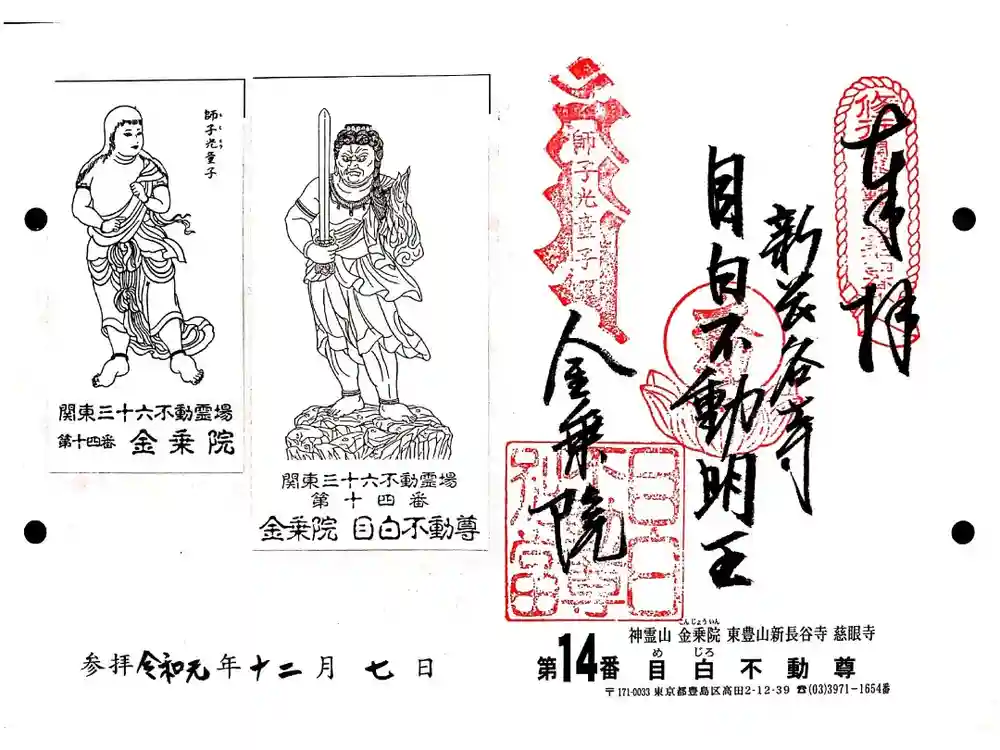 奉拝
新長谷寺
目白不動明王
金乗院
師子光童子
目白不動尊別當
師子光童子
関東三十六不動霊場
第十四番 金乗院
関東三十六不動霊場
第十四番
金乗院 目白不動尊
参拝 令和元年十二月七日
こんじょういん
神霊山 金乗院 東豊山新長谷寺 慈眼寺
めじろ
第14番 目白不動尊
〒171-0033 東京都豊島区高田2-12-39 ☎(03)3971-1654番